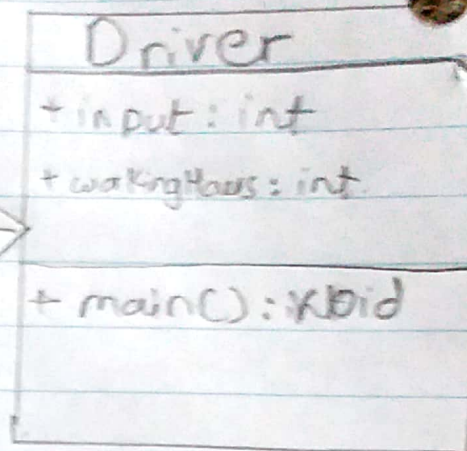 Driver
+ input : int
+ wakingHours : int
+ main() : void